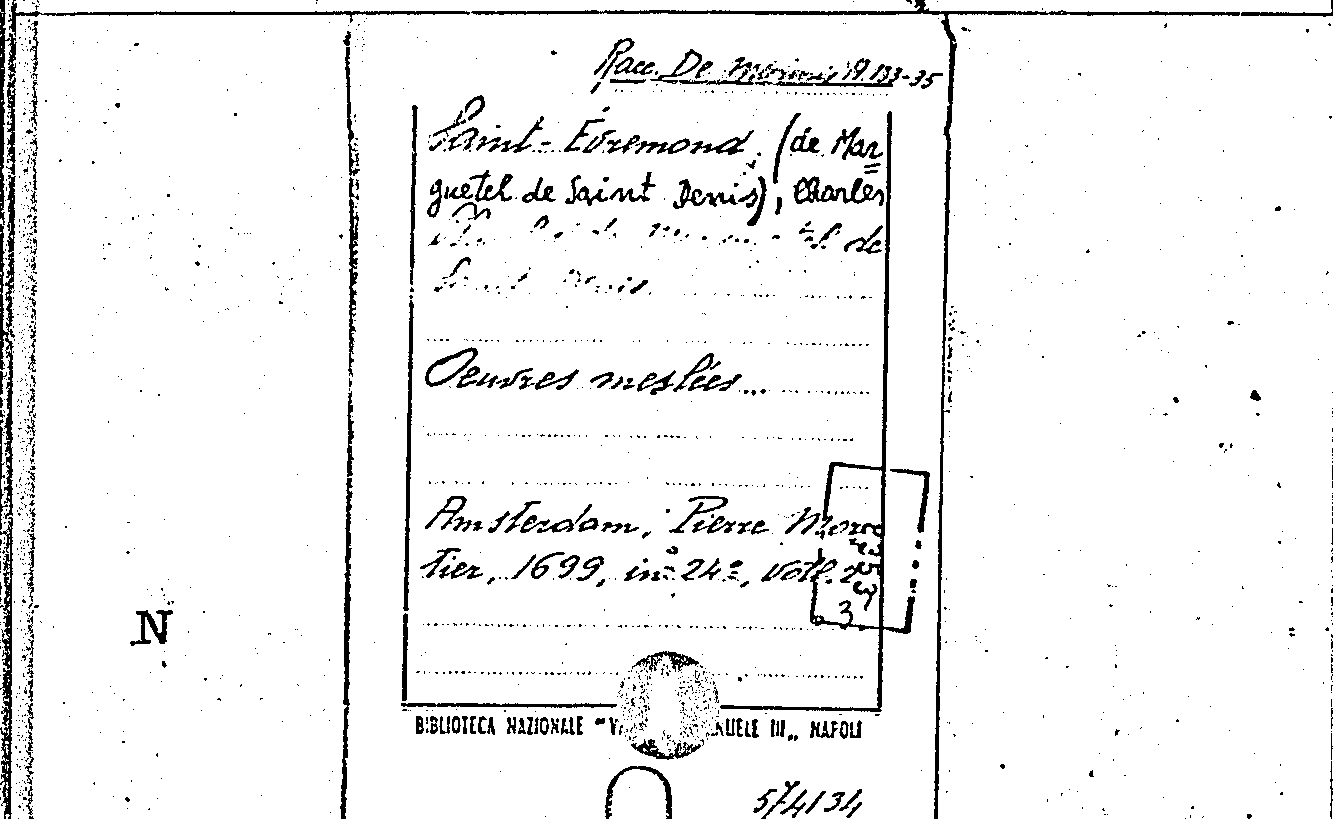 Racc. De Marinis 19.133-35
Saint-Évremond, (de Mar
guetel de Saint Denis), Charles
de
Saint Denis.
Oeuvres meslées...
Amsterdam, Pierre Morte
tier, 1699, in 24º, voll. 2
3
N
BIBLIOTECA NAZIONALE "V NUELE III„ NAPOLI
574134